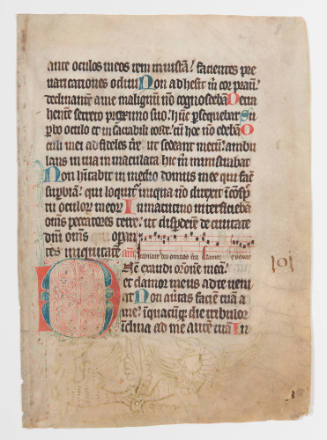 ante oculos meos rem iniustā! facientes pre
uaricationes odiui Non adhesit m̄ cor prauū!
declinantē a me malignū nō cognoscebā Detra
hentē secreto proximo suo! hūc persequebar Su
ꝑbo oculo et insaciabili corde! cū hoc nō edebā O
culi mei ad fideles t̄re ut sedeant mecū! ambu
lans in uia inmaculata hic m̄ ministrabat
Non hītabit in medio domus mee qui facit
suꝑbiā! qui loquitᷣ iniqua nō direxit ī cōspc̄
tu oculorꝫ meorꝫ In matutino interficiebā
om̄s peccatores terre! ut disperdeᷣm de ciuitate
dn̄i om̄s operan
tes iniquitatē
Dn̄e exaudi orōnē meā!
et clamor meus ad te ueni
at Non auertas faciē tuā a
me! ī quacūqꝫ die tribulor
inclina ad me aurē tuā In
101